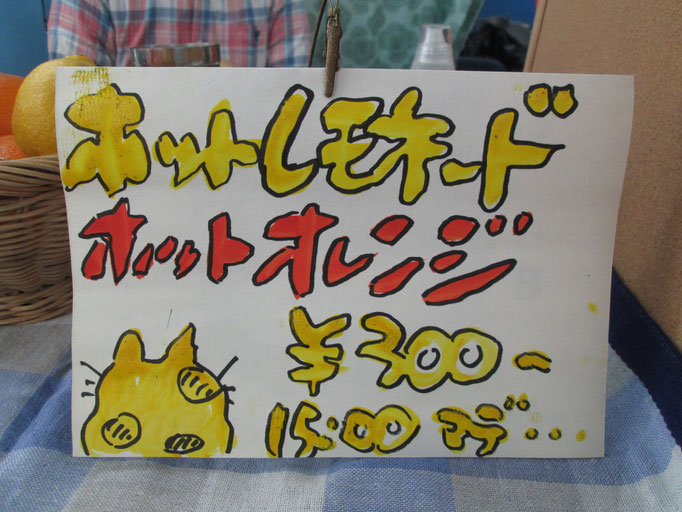 ホットレモキード
ホットオレンジ
¥300-
15:00 マデ...